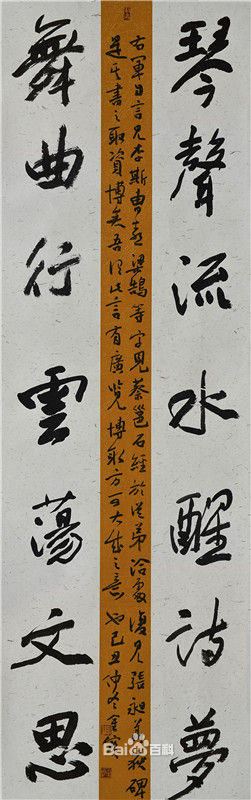 琴聲流水醒詩夢
右軍自言見李斯曹喜梁鵠等字見蔡邕石經於從弟洽處復見張昶華嶽碑
是其書之取資博矣吾此言有廣覽博取方可大成之意也己丑仲冬
舞曲行雲蕩文思
Bai百科